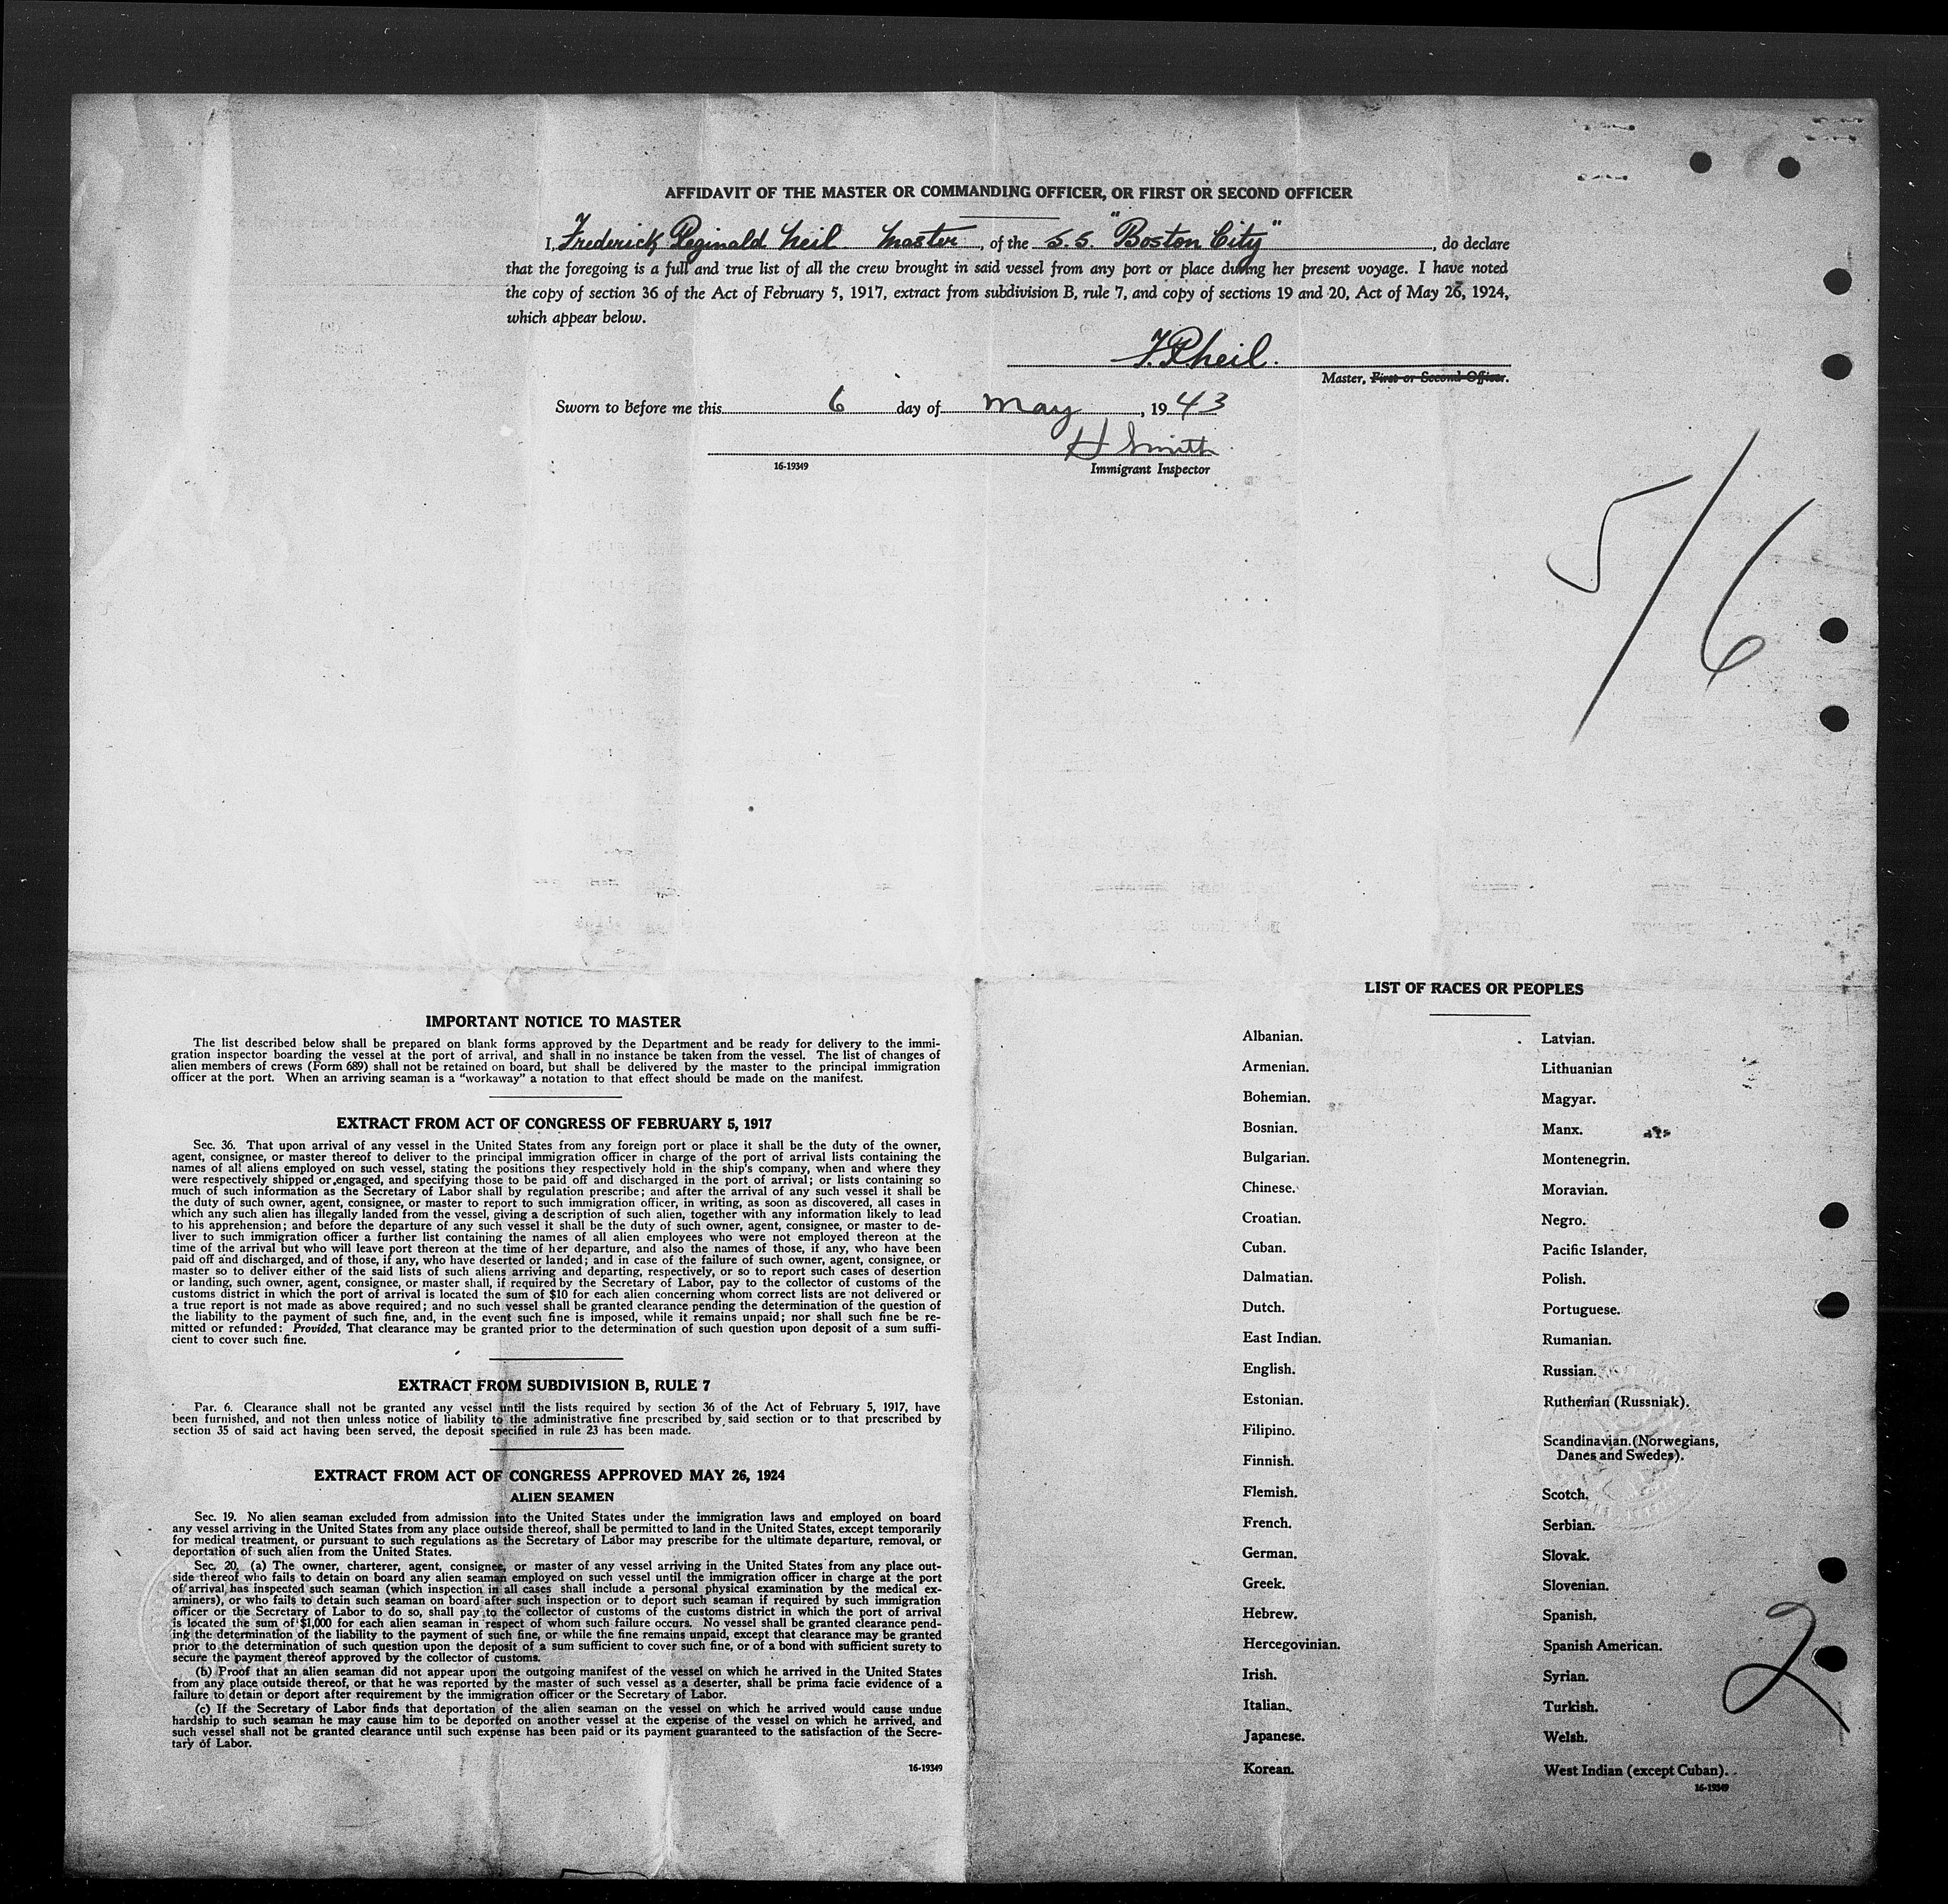 AFFIDAVIT OF THE MASTER OR COMMANDING OFFICER, OR FIRST OR SECOND OFFICER
I, Frederick Reginald Neil Master, of the S.S. "Boston City", do declare
that the foregoing is a full and true list of all the crew brought in said vessel from any port or place during her present voyage. I have noted
the copy of section 36 of the Act of February 5, 1917, extract from subdivision B, rule 7, and copy of sections 19 and 20, Act of May 26, 1924,
which appear below.
F.R.Neil.
Master, First or Second Officer.
Sworn to before me this 6 day of May, 1943
H Smith
16-19349 Immigrant Inspector
5/6
IMPORTANT NOTICE TO MASTER
The list described below shall be prepared on blank forms approved by the Department and be ready for delivery to the immi-
gration inspector boarding the vessel at the port of arrival, and shall in no instance be taken from the vessel. The list of changes of
alien members of crews (Form 689) shall not be retained on board, but shall be delivered by the master to the principal immigration
officer at the port. When an arriving seaman is a "workaway" a notation to that effect should be made on the manifest.
EXTRACT FROM ACT OF CONGRESS OF FEBRUARY 5, 1917
Sec. 36. That upon arrival of any vessel in the United States from any foreign port or place it shall be the duty of the owner,
agent, consignee, or master thereof to deliver to the principal immigration officer in charge of the port of arrival lists containing the
names of all aliens employed on such vessel, stating the positions they respectively hold in the ship's company, when and where they
were respectively shipped or engaged, and specifying those to be paid off and discharged in the port of arrival; or lists containing so
much of such information as the Secretary of Labor shall by regulation prescribe; and after the arrival of any such vessel it shall be
the duty of such owner, agent, consignee, or master to report to such immigration officer, in writing, as soon as discovered, all cases in
which any such alien has illegally landed from the vessel, giving a description of such alien, together with any information likely to lead
to his apprehension; and before the departure of any such vessel it shall be the duty of such owner, agent, consignee, or master to de-
liver to such immigration officer a further list containing the names of all alien employees who were not employed thereon at the
time of the arrival but who will leave port thereon at the time of her departure, and also the names of those, if any, who have been
paid off and discharged, and of those, if any, who have deserted or landed; and in case of the failure of such owner, agent, consignee, or
master so to deliver either of the said lists of such aliens arriving and departing, respectively, or so to report such cases of desertion
or landing, such owner, agent, consignee, or master shall, if required by the Secretary of Labor, pay to the collector of customs of the
customs district in which the port of arrival is located the sum of $10 for each alien concerning whom correct lists are not delivered or
a true report is not made as above required; and no such vessel shall be granted clearance pending the determination of the question of
the liability to the payment of such fine, and, in the event such fine is imposed, while it remains unpaid; nor shall such fine be re-
mitted or refunded: Provided, That clearance may be granted prior to the determination of such question upon deposit of a sum suffi-
cient to cover such fine.
EXTRACT FROM SUBDIVISION B, RULE 7
Par. 6. Clearance shall not be granted any vessel until the lists required by section 36 of the Act of February 5, 1917, have
been furnished, and not then unless notice of liability to the administrative fine prescribed by said section or to that prescribed by
section 35 of said act having been served, the deposit specified in rule 23 has been made.
EXTRACT FROM ACT OF CONGRESS APPROVED MAY 26, 1924
ALIEN SEAMEN
Sec. 19. No alien seaman excluded from admission into the United States under the immigration laws and employed on board
any vessel arriving in the United States from any place outside thereof, shall be permitted to land in the United States, except temporarily
for medical treatment, or pursuant to such regulations as the Secretary of Labor may prescribe for the ultimate departure, removal, or
deportation of such alien from the United States.
Sec. 20. (a) The owner, charterer, agent, consignee, or master of any vessel arriving in the United States from any place out-
side thereof who fails to detain on board any alien seaman employed on such vessel until the immigration officer in charge at the port
of arrival has inspected such seaman (which inspection in all cases shall include a personal physical examination by the medical ex-
aminers), or who fails to detain such seaman on board after such inspection or to deport such seaman if required by such immigration
officer or the Secretary of Labor to do so, shall pay to the collector of customs of the customs district in which the port of arrival
is located the sum of $1,000 for each alien seaman in respect of whom such failure occurs. No vessel shall be granted clearance pend-
ing the determination of the liability to the payment of such fine, or while the fine remains unpaid, except that clearance may be granted
prior to the determination of such question upon the deposit of a sum sufficient to cover such fine, or of a bond with sufficient surety to
secure the payment thereof approved by the collector of customs.
(b) Proof that an alien seaman did not appear upon the outgoing manifest of the vessel on which he arrived in the United States
from any place outside thereof, or that he was reported by the master of such vessel as a deserter, shall be prima facie evidence of a
failure to detain or deport after requirement by the immigration officer or the Secretary of Labor.
(c) If the Secretary of Labor finds that deportation of the alien seaman on the vessel on which he arrived would cause undue
hardship to such seaman he may cause him to be deported on another vessel at the expense of the vessel on which he arrived, and
such vessel shall not be granted clearance until such expense has been paid or its payment guaranteed to the satisfaction of the Secre-
tary of Labor.
16-19349
LIST OF RACES OR PEOPLES
Albanian.
Armenian.
Bohemian.
Bosnian.
Bulgarian.
Chinese.
Croatian.
Cuban.
Dalmatian.
Dutch.
East Indian.
English.
Estonian.
Filipino.
Finnish.
Flemish.
French.
German.
Greek.
Hebrew.
Hercegovinian.
Irish.
Italian.
Japanese.
Korean.
Latvian.
Lithuanian
Magyar.
Manx.
Montenegrin.
Moravian.
Negro.
Pacific Islander.
Polish.
Portuguese.
Rumanian.
Russian.
Ruthenian (Russniak).
Scandinavian (Norwegians,
Danes and Swedes).
Scotch.
Serbian.
Slovak.
Slovenian.
Spanish.
Spanish American.
Syrian.
Turkish.
Welsh.
West Indian (except Cuban).
16-19349
2